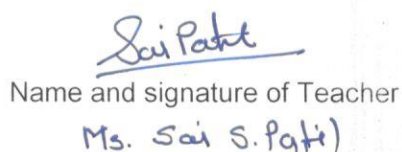 Sai Patil
Name and signature of Teacher
Ms. Sai S. Patil)